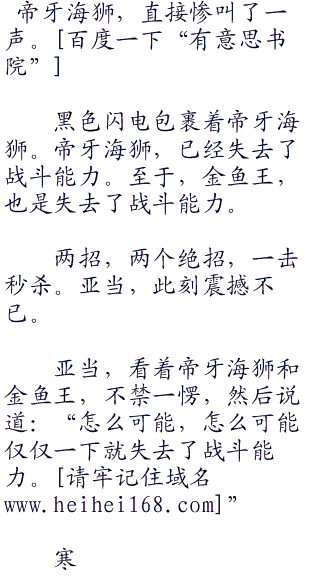 帝牙海狮，直接惨叫了一
声。[百度一下“有意思书
院”]
黑色闪电包裹着帝牙海
狮。帝牙海狮，已经失去了
战斗能力。至于，金鱼王，
也是失去了战斗能力。
两招，两个绝招，一击
秒杀。亚当，此刻震撼不
已。
亚当，看着帝牙海狮和
金鱼王，不禁一愣，然后说
道：“怎么可能，怎么可能
仅仅一下就失去了战斗能
力。[请牢记住域名
www.heihei168.com]”
寒